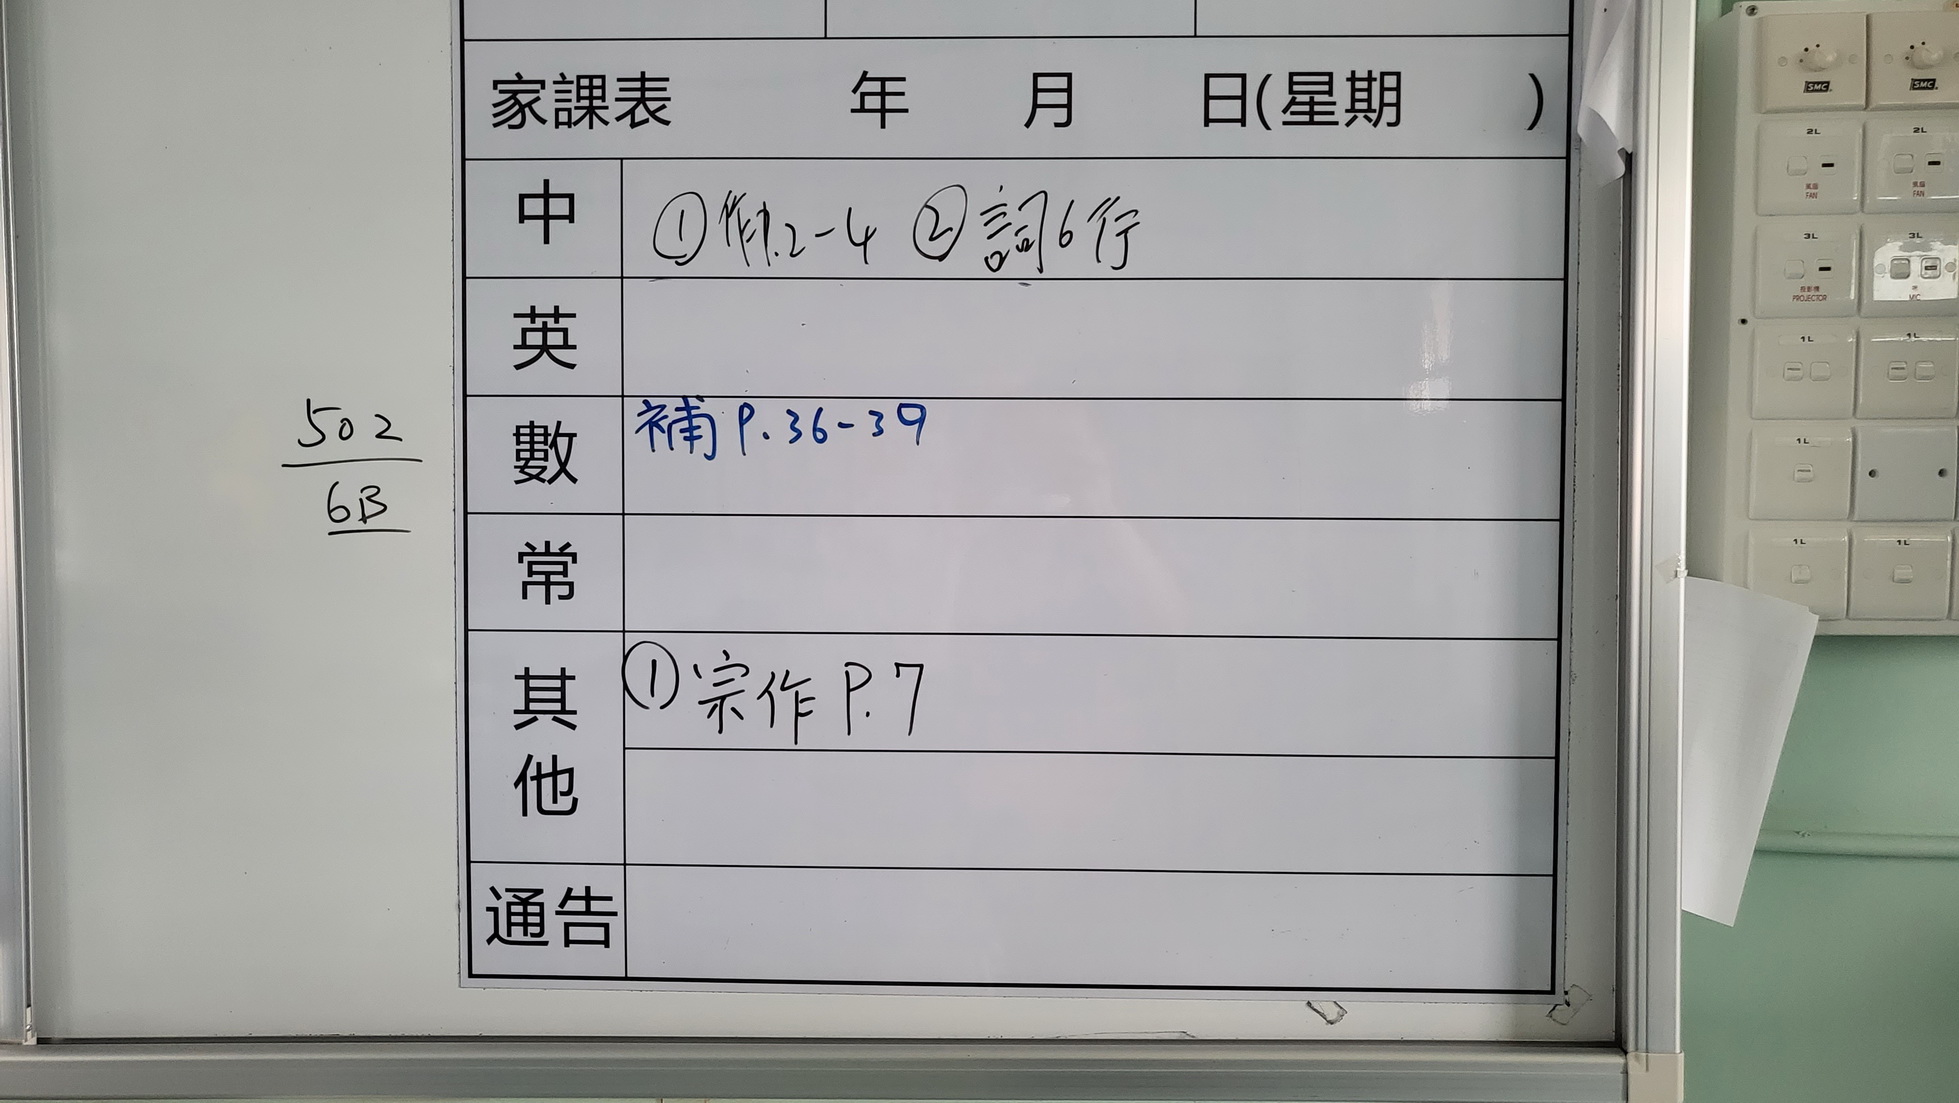 家課表 年 月 日(星期 )
中 ①作P.2-4 ②詞6行
英
數 補 P.36-39
常
其他 ①宗作 P.7
通告
502
6B
SMC SMC
2L 2L
風扇 風扇
FAN FAN
3L 3L
投影機 咪
PROJECTOR MIC
1L 1L
1L
1L 1L